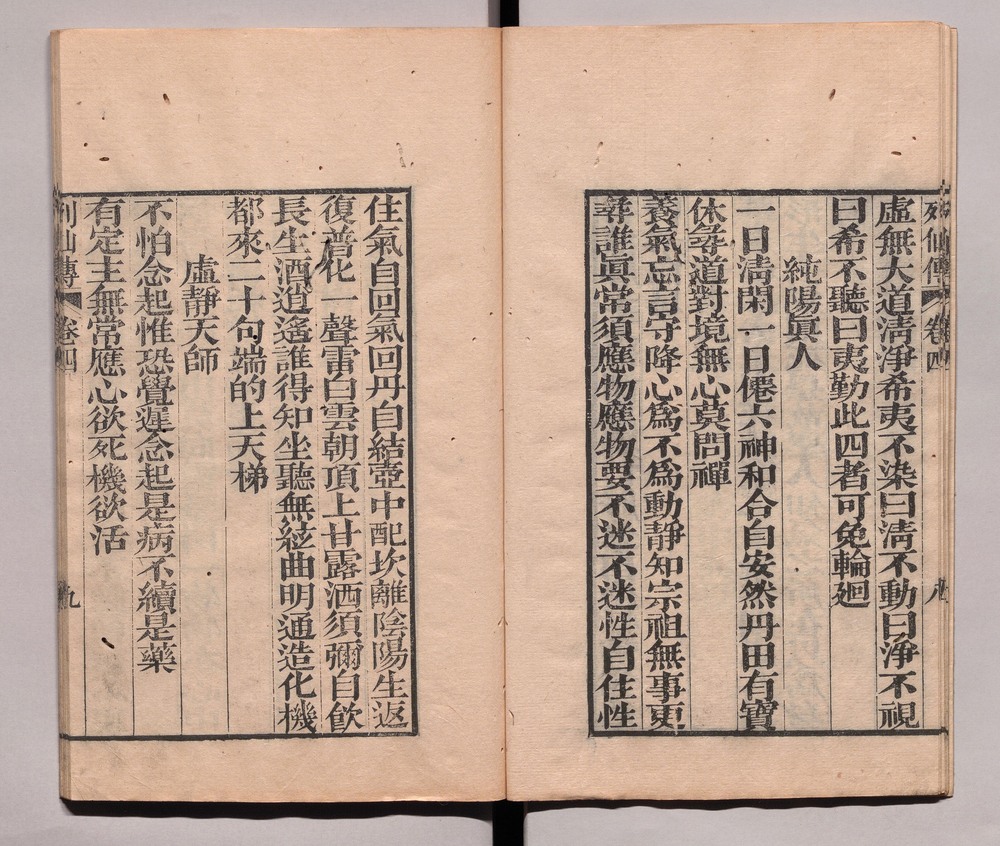 列仙傳 卷四 八
虛無大道清淨希夷不染曰清不動曰淨不視
曰希不聽曰夷勤此四者可免輪廻
純陽眞人
一日清閑一日僊六神和合自安然丹田有寶
休尋道對境無心莫問禪
養氣忘言守降心爲不爲動靜知宗祖無事更
尋誰眞常須應物應物要不迷不迷性自住性
住氣自回氣回丹自結壺中配坎離陰陽生返
復普化一聲雷白雲朝頂上甘露洒須彌自飮
長生酒逍遙誰得知坐聽無絃曲明通造化機
都來二十句端的上天梯
虛靜天師
不怕念起惟恐覺遲念起是病不續是藥
有定主無常應心欲死機欲活
列仙傳 卷四 九